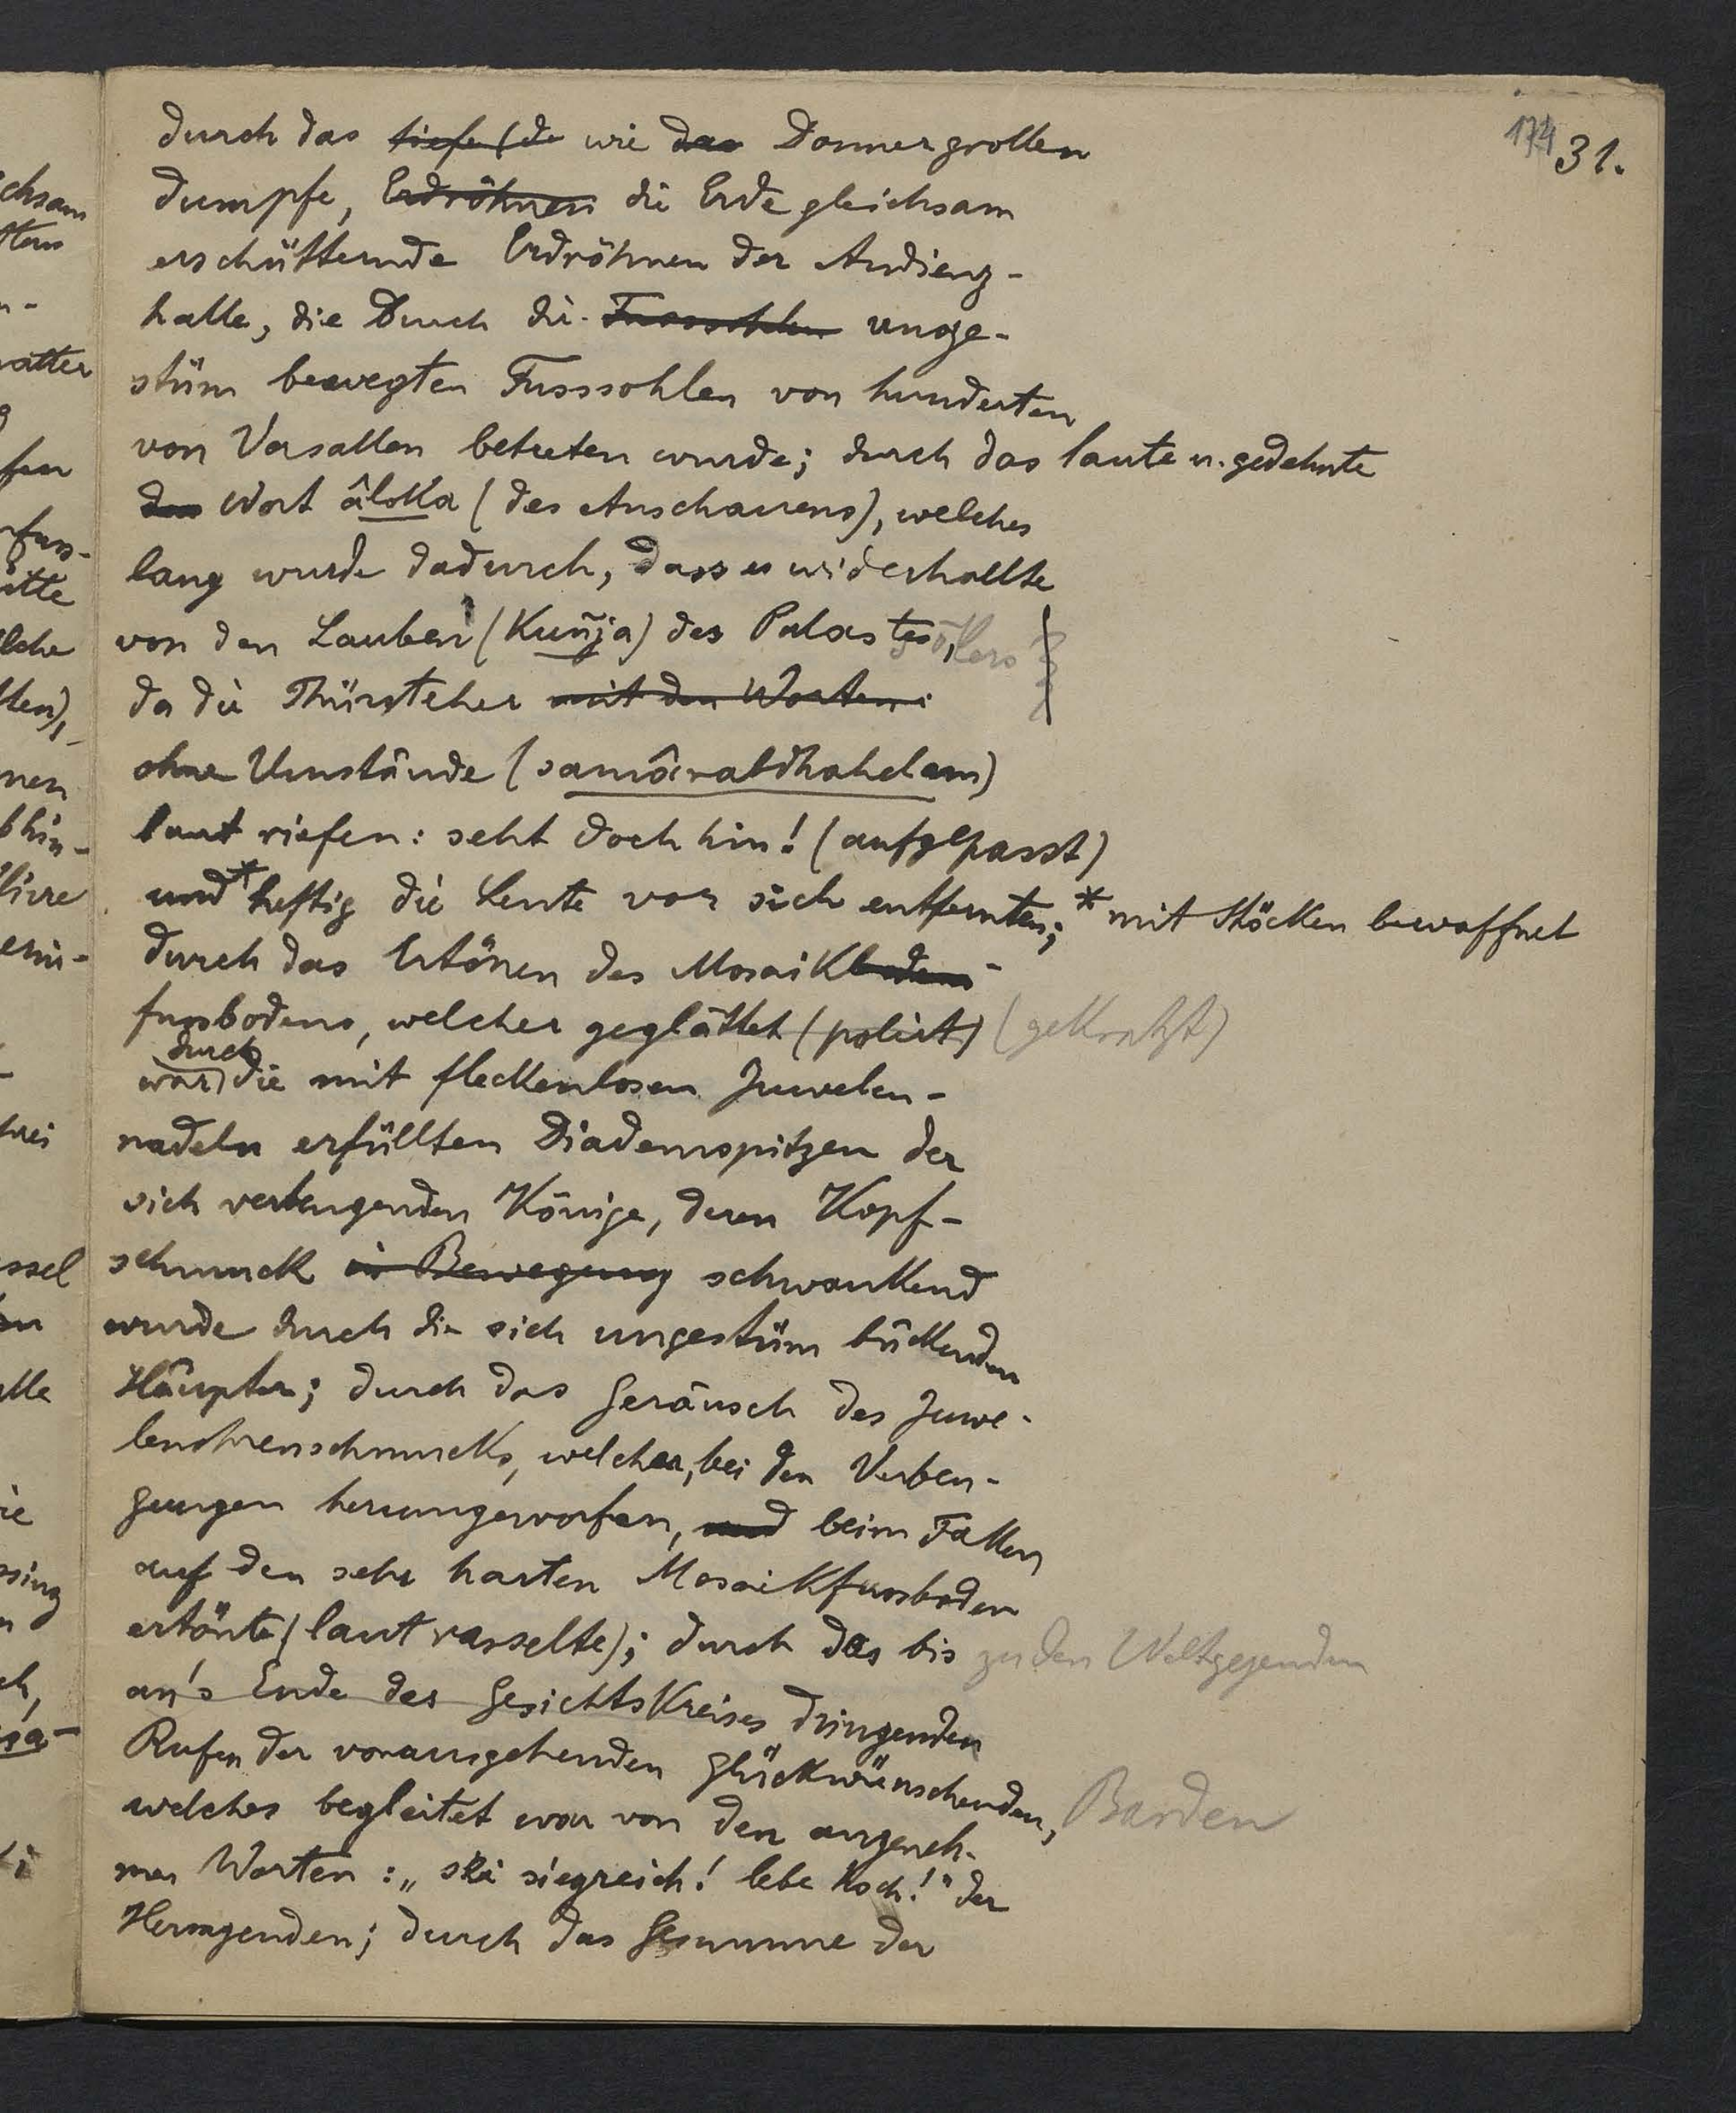 174 31.
durch das tiefe (de wie das Donnergrollen
dumpfe, Erdröhnen die Erde gleichsam
erschütternde Erdröhnen der Audienz-
halle, die durch die Fusssohlen unge-
stüm bewegten Fusssohlen von hunderten
von Vasallen betreten wurde; durch das laute u. gedehnte
das Wort âloka (des Anschauens), welches
lang wurde dadurch, dass es widerhallte
von den Lauben (Kuñja) des Palastes,
da die Thürsteher mit den Worten:
ohne Umstände (
laut riefen: seht doch hin! (aufgepasst)
und * heftig die Leute vor sich entfernten; * mit Stöcken bewaffnet
durch das Ertönen des Mosaikbodens-
fussbodens, welcher geglättet (polirt) (gekratzt)
durch
war) die mit fleckenlosen Juwelen-
nadeln erfüllten Diademspitzen der
sich verbeugenden Könige, deren Kopf-
schmuck in Bewegung schwankend
wurde durch die sich ungestüm bückenden
Häupter; durch das Geräusch des Juwe-
lenohrenschmucks, welcher, bei den Verbeu-
gungen herumgeworfen, und beim Fallen
auf den sehr harten Mosaikfussboden
ertönte (laut rasselte); durch das bis zu den Weltgegenden
an's Ende des Gesichtskreises dringenden
Rufen der vorausgehenden Glückwünschenden, Barden
welches begleitet war von den angeneh-
men Worten: „sei siegreich! lebe hoch!" der
Hersagenden; durch das Gesumme der
chsam
n-
fen
lche
lten),
nen
bhin-
ssel
ssing